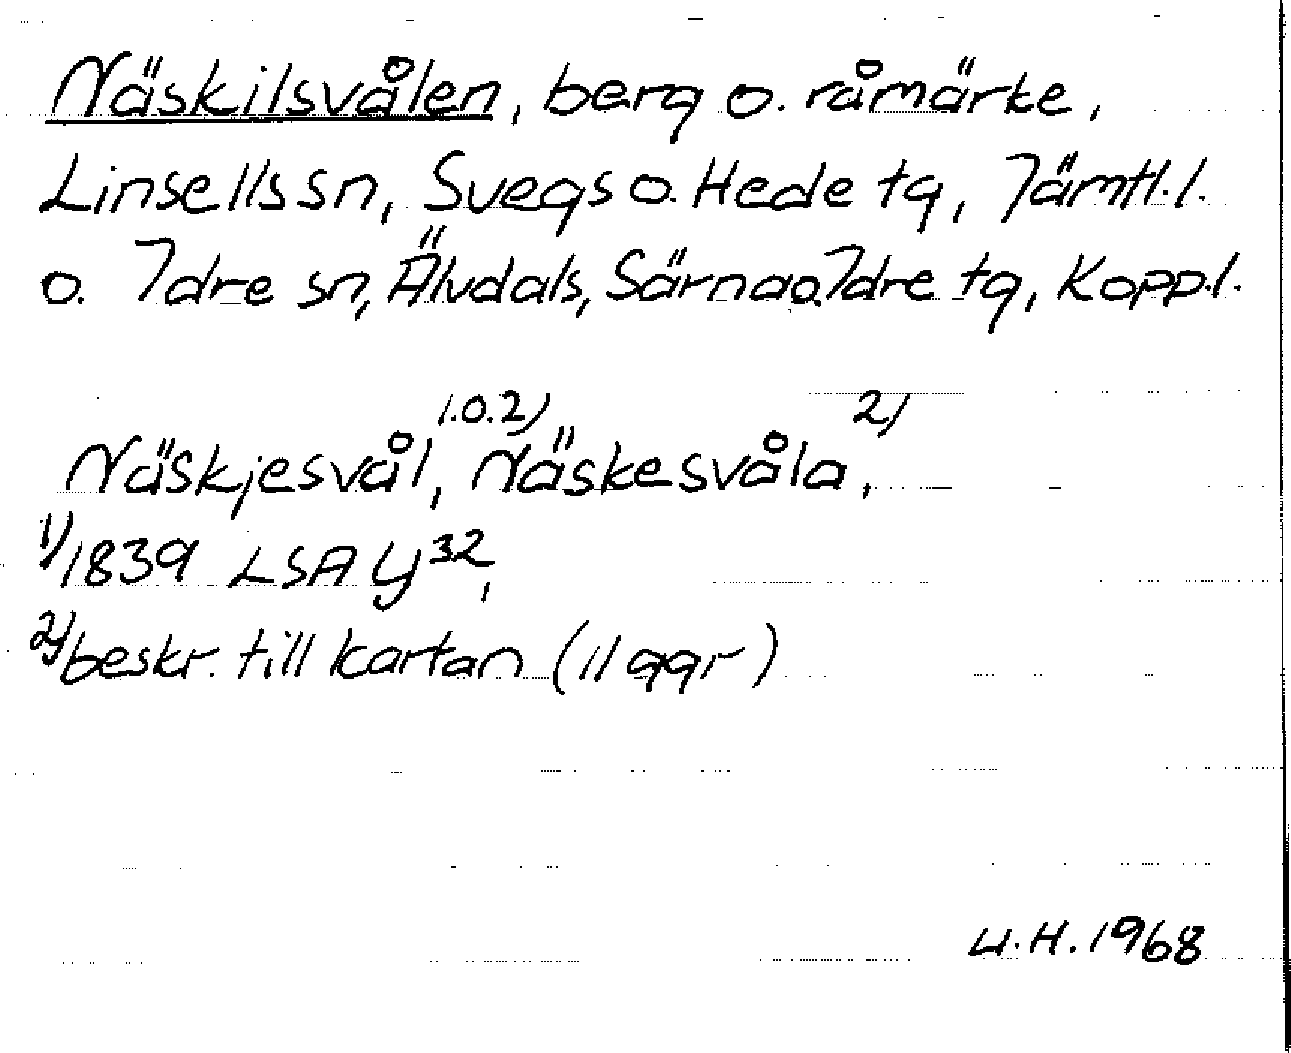 Näskilsvålen, berg o. råmärke,
Linsells sn, Svegs o. Hede tg, Jämtl. l.
o. Idre sn, Älvdals, Särna o. Idre tg, Kopp. l.
Näskjesvål, 1.o.2) Näskesvåla, 2)
1) 1839 LSA Y 32,
2) beskr. till kartan (11 ggr)
U.H. 1968